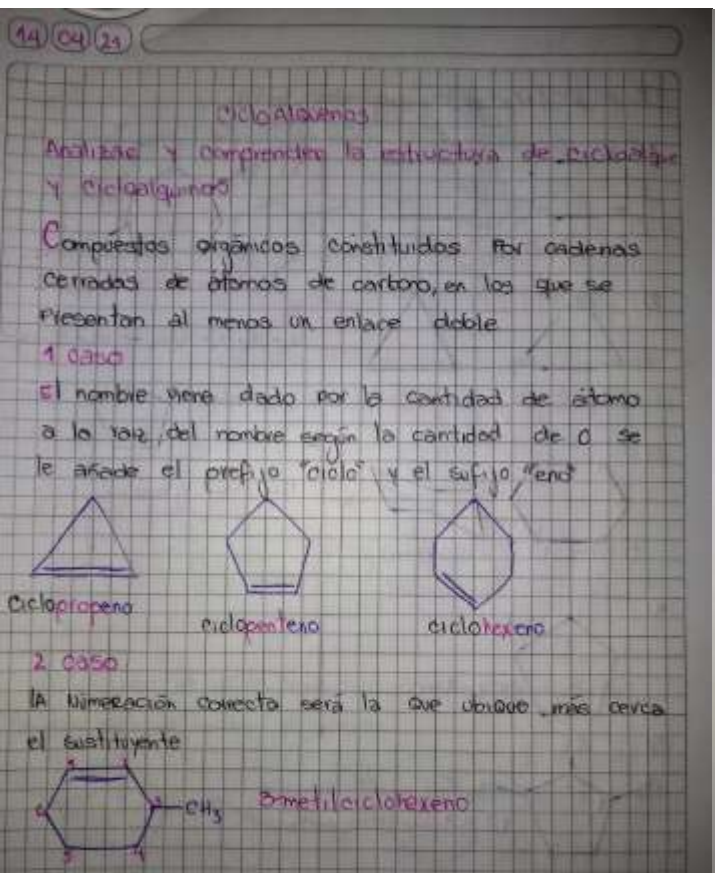 14 04 21
Cicloalquenos
Analizar y comprender la estructura de
y cicloalquinos
Compuestos orgánicos constituidos Por cadenas
cerradas de átomos de carbono, en los que se
Presentan al menos un enlace doble
1 caso
El nombre viene dado por la cantidad de átomo
a la raiz, del nombre según la cantidad de C se
le añade el prefijo "ciclo" y el sufijo "eno"
ciclopropeno
ciclopenteno
ciclohexeno
2 caso
lA Numeración correcta será la que ubique más cerca
el sustituyente
CH3
3-metilciclohexeno
6
5
4